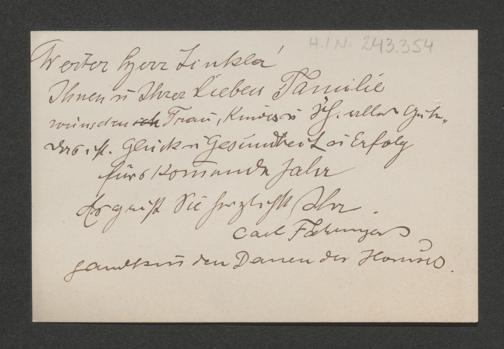 H.I.N. 243.354
Werter Herr Zinkla!
Ihnen u Ihrer Lieben Familie
wünschen Frau, Kinder u ich alles Gute,
das ist. Glück u Gesundheit u Erfolg
fürs komende Jahr
Es grüßt Sie herzlichst Ihr
Carl
Handkuss den Damen des Hauses.